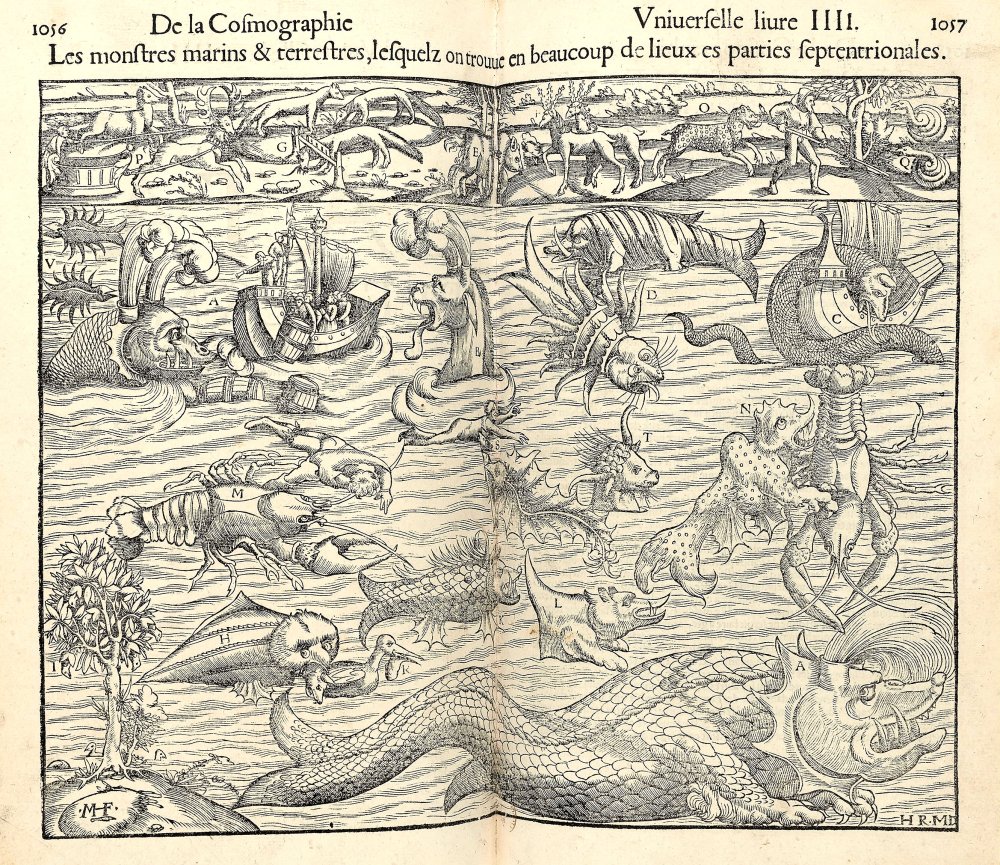 1056 De la Coſmographie Vniuerſelle liure IIII. 1057
Les monſtres marins & terreſtres, leſquelz on trouue en beaucoup de lieux es parties ſeptentrionales.
P G O Q
V A D C
N T
M
H L
K A
I
MHF.
H R·MD